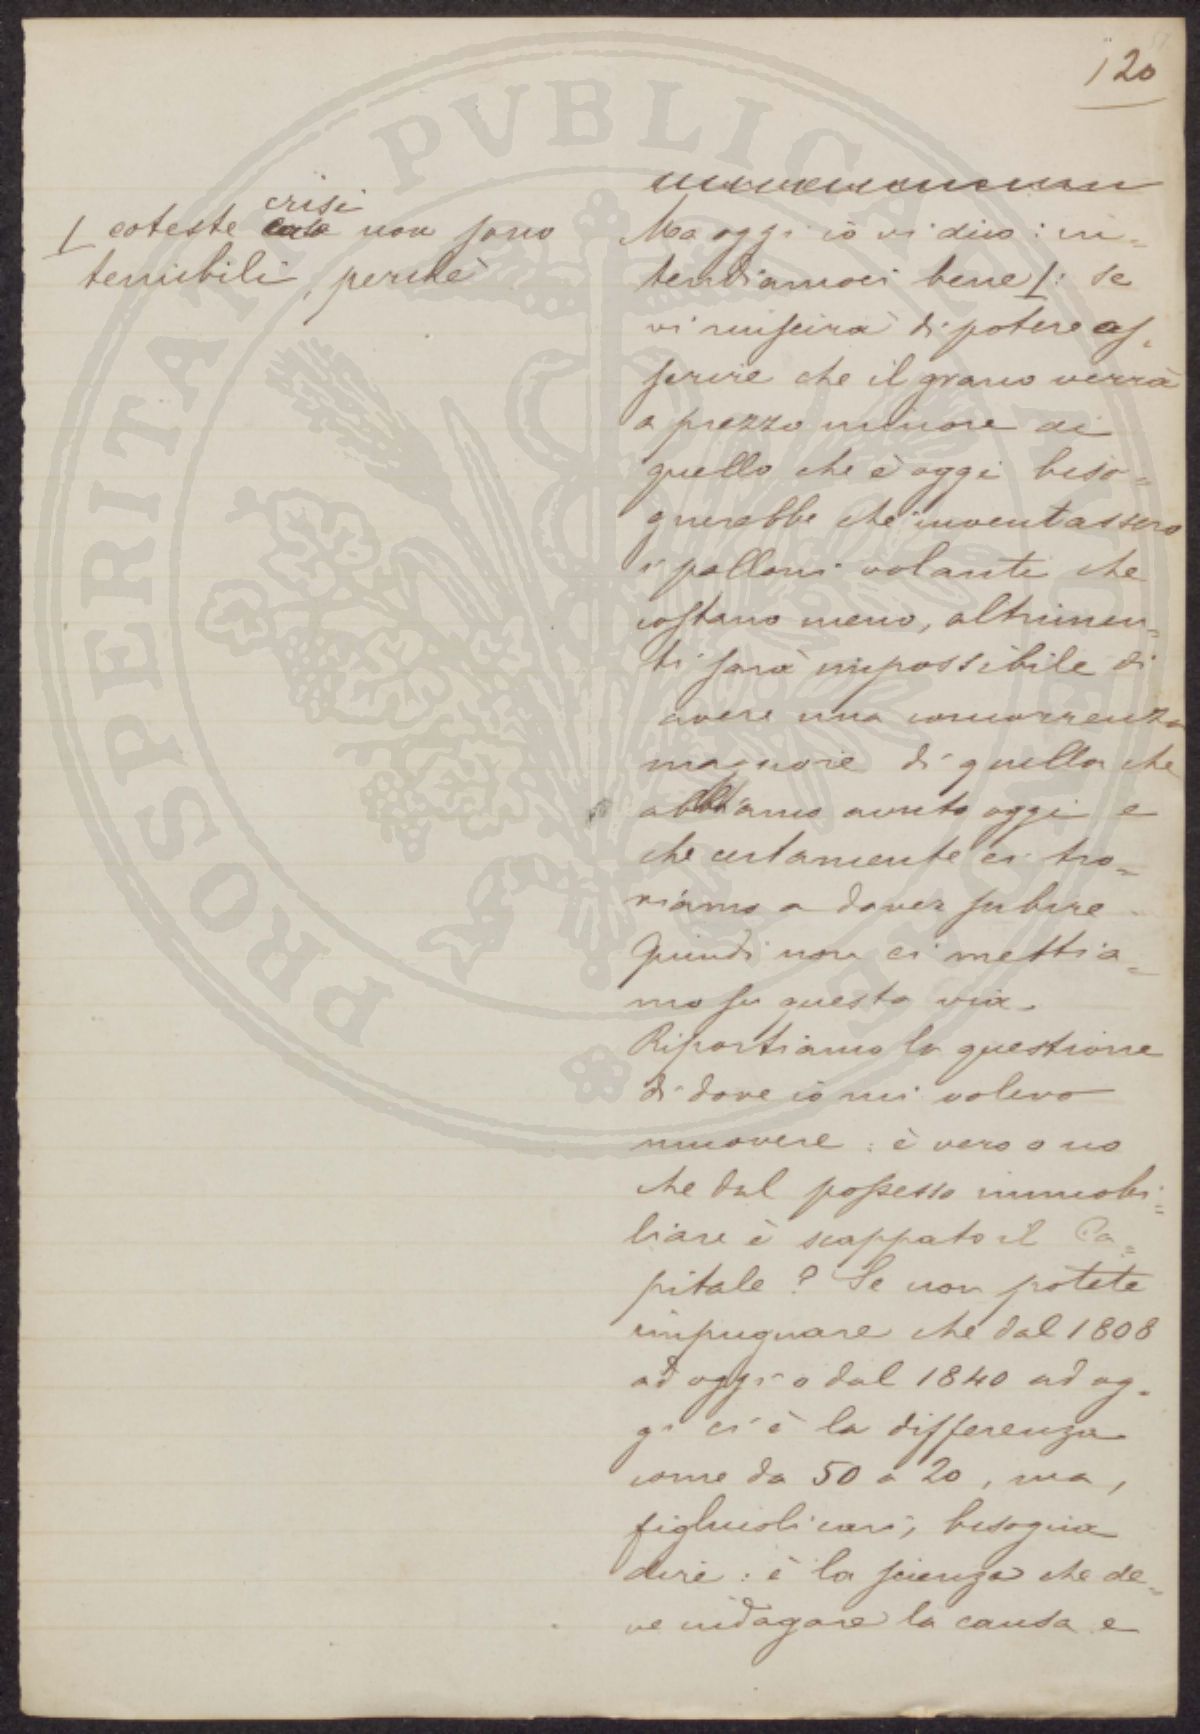 120
crisi
coteste non sono
temibili, perchè
Ma oggi io vi dico: in=
tendiamoci bene: se
vi riuscirà di potere as=
serire che il grano verrà
a prezzo minore di
quello che è oggi biso=
gnerebbe che inventassero
i palloni volanti che
costano meno, altrimen=
ti sarà impossibile di
avere una concorrenza
maggiore di quella che
abbiamo avuto oggi e
che certamente ci tro=
viamo a dover subire
Quindi non ci mettia=
mo su questa via.
Riportiamo la questione
di dove io mi volevo
muovere: è vero o no
che dal possesso immobi=
liare è scappato il Ca=
pitale? Se non potete
impugnare che dal 1808
ad oggi o dal 1840 ad og=
gi ci è la differenza
come da 50 a 20, ma,
figliuoli cari, bisogna
dire: è la scienza che de=
ve indagare la causa e
PROSPERITATI PUBLICAE AUGENDAE